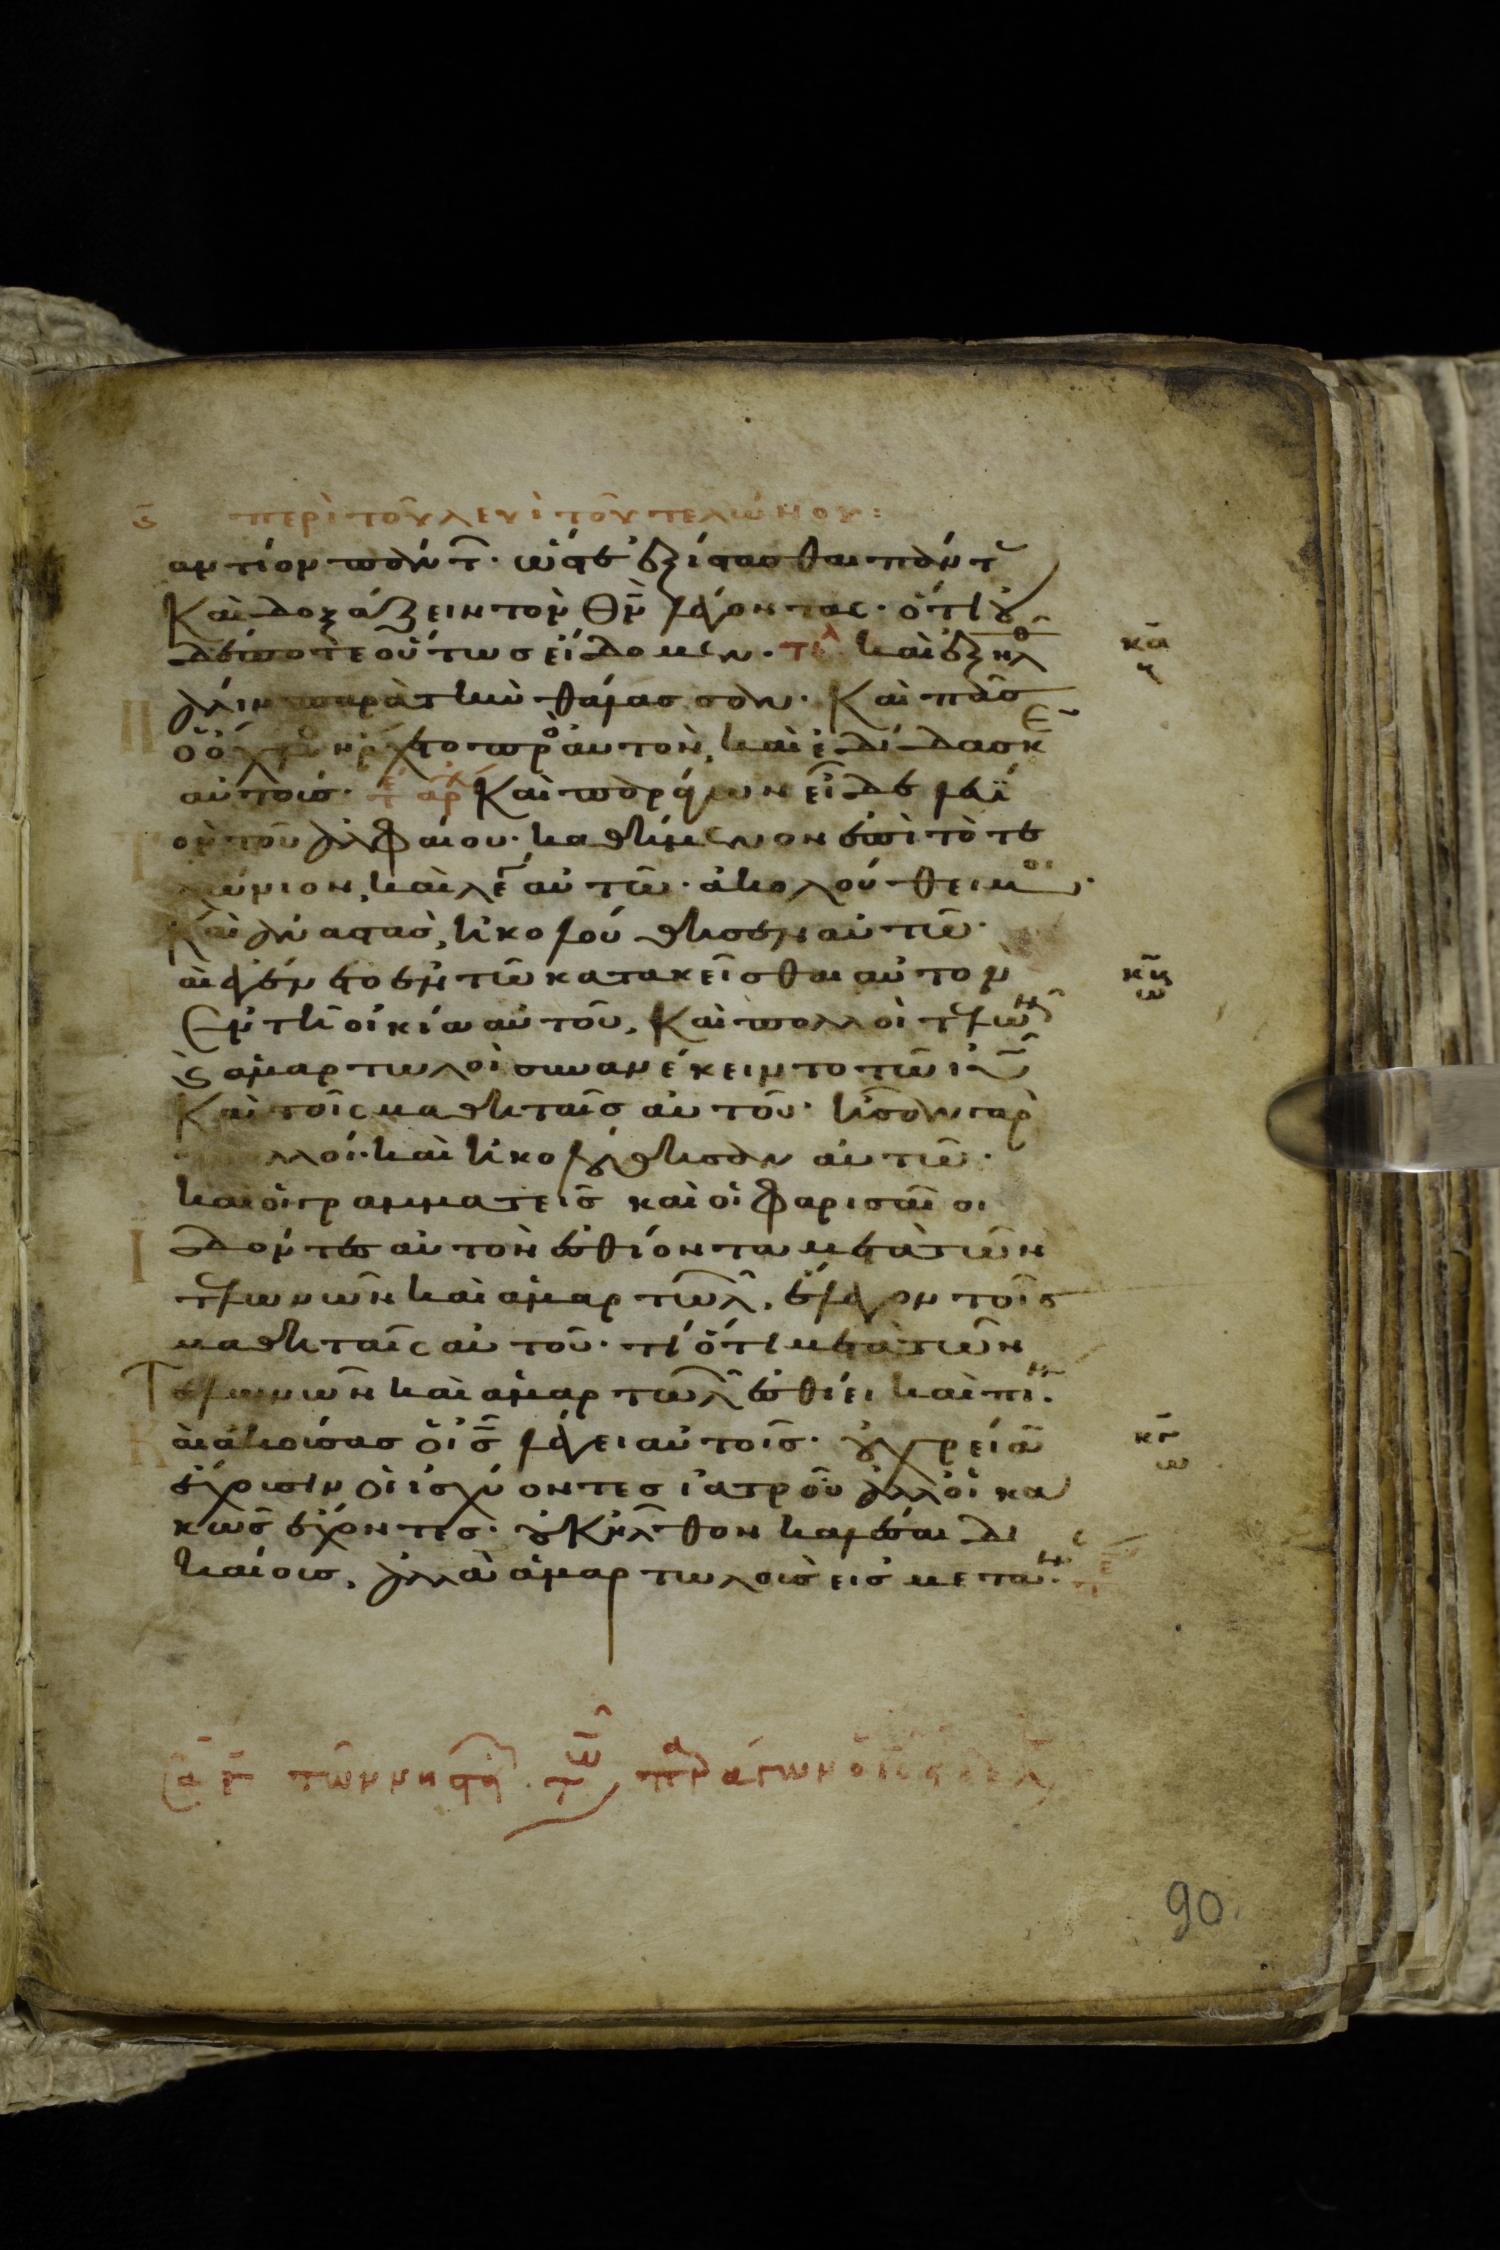 ς περὶ τοῦ λευὶ τοῦ τελώνου:
αντίον πάντ· ὥστε ἐξίστασθαι πάντ
Καὶ δοξάζειν τὸν θν λέγοντας· ὅτι οὐ
δέποτε οὕτως εἴδομεν· τελ καὶ ἐξηλθ
κα
πάλιν παρὰ τὴν θάλασσαν· Καὶ πᾶσ
ὁ ὄχλος ἤρχετο προ αὐτὸν, καὶ ἐδίδασκε
αὐτοις· αρχ Καὶ παράγων εἶδε λευὶ
ον τοῦ ἀλφαίου· καθήμενον ἐπὶ τὸ τε
λώνιον, καὶ λέγ αὐτῶ· ἀκολούθει μοι·
Καὶ ἀναστασ, ἠκολούθησεν αὐτῶ·
αὶ ἐγένετο ἐν τῶ κατακεῖσθαι αὐτὸν
Εν τῆ οἰκία αὐτοῦ, Καὶ πολλοὶ τελῶν
ς ἁμαρτωλοὶ συνανέκειντο τῶ ιυ
Καὶ τοῖς μαθηταῖσ αὐτοῦ· ἦσαν γαρ
λλοί· καὶ ἠκολούθησαν αὐτῶ·
καὶ οἱ γραμματεῖσ καὶ οἱ φαρισαῖοι
δόντες αὐτὸν ἐσθίοντα μετὰ τῶν
τελωνῶν καὶ ἁμαρτωλ, ἔλεγον τοῖσ
μαθηταῖς αὐτοῦ· τί ὅτι μετὰ τῶν
Τελωνῶν καὶ ἁμαρτωλ ἐσθίει καὶ πιν·
αὶ ἀκούσας ὁ ισ λέγει αὐτοῖσ· οὐ χρείαν
ἔχουσιν οἱ ἰσχύοντες ἰατροῦ ἀλλ οἱ κα
κῶς ἔχοντες· οὐκ ἦλθον καλέσαι δι
καίουσ, ἀλλὰ ἁμαρτωλοὺσ εἰσ μεταν·
90